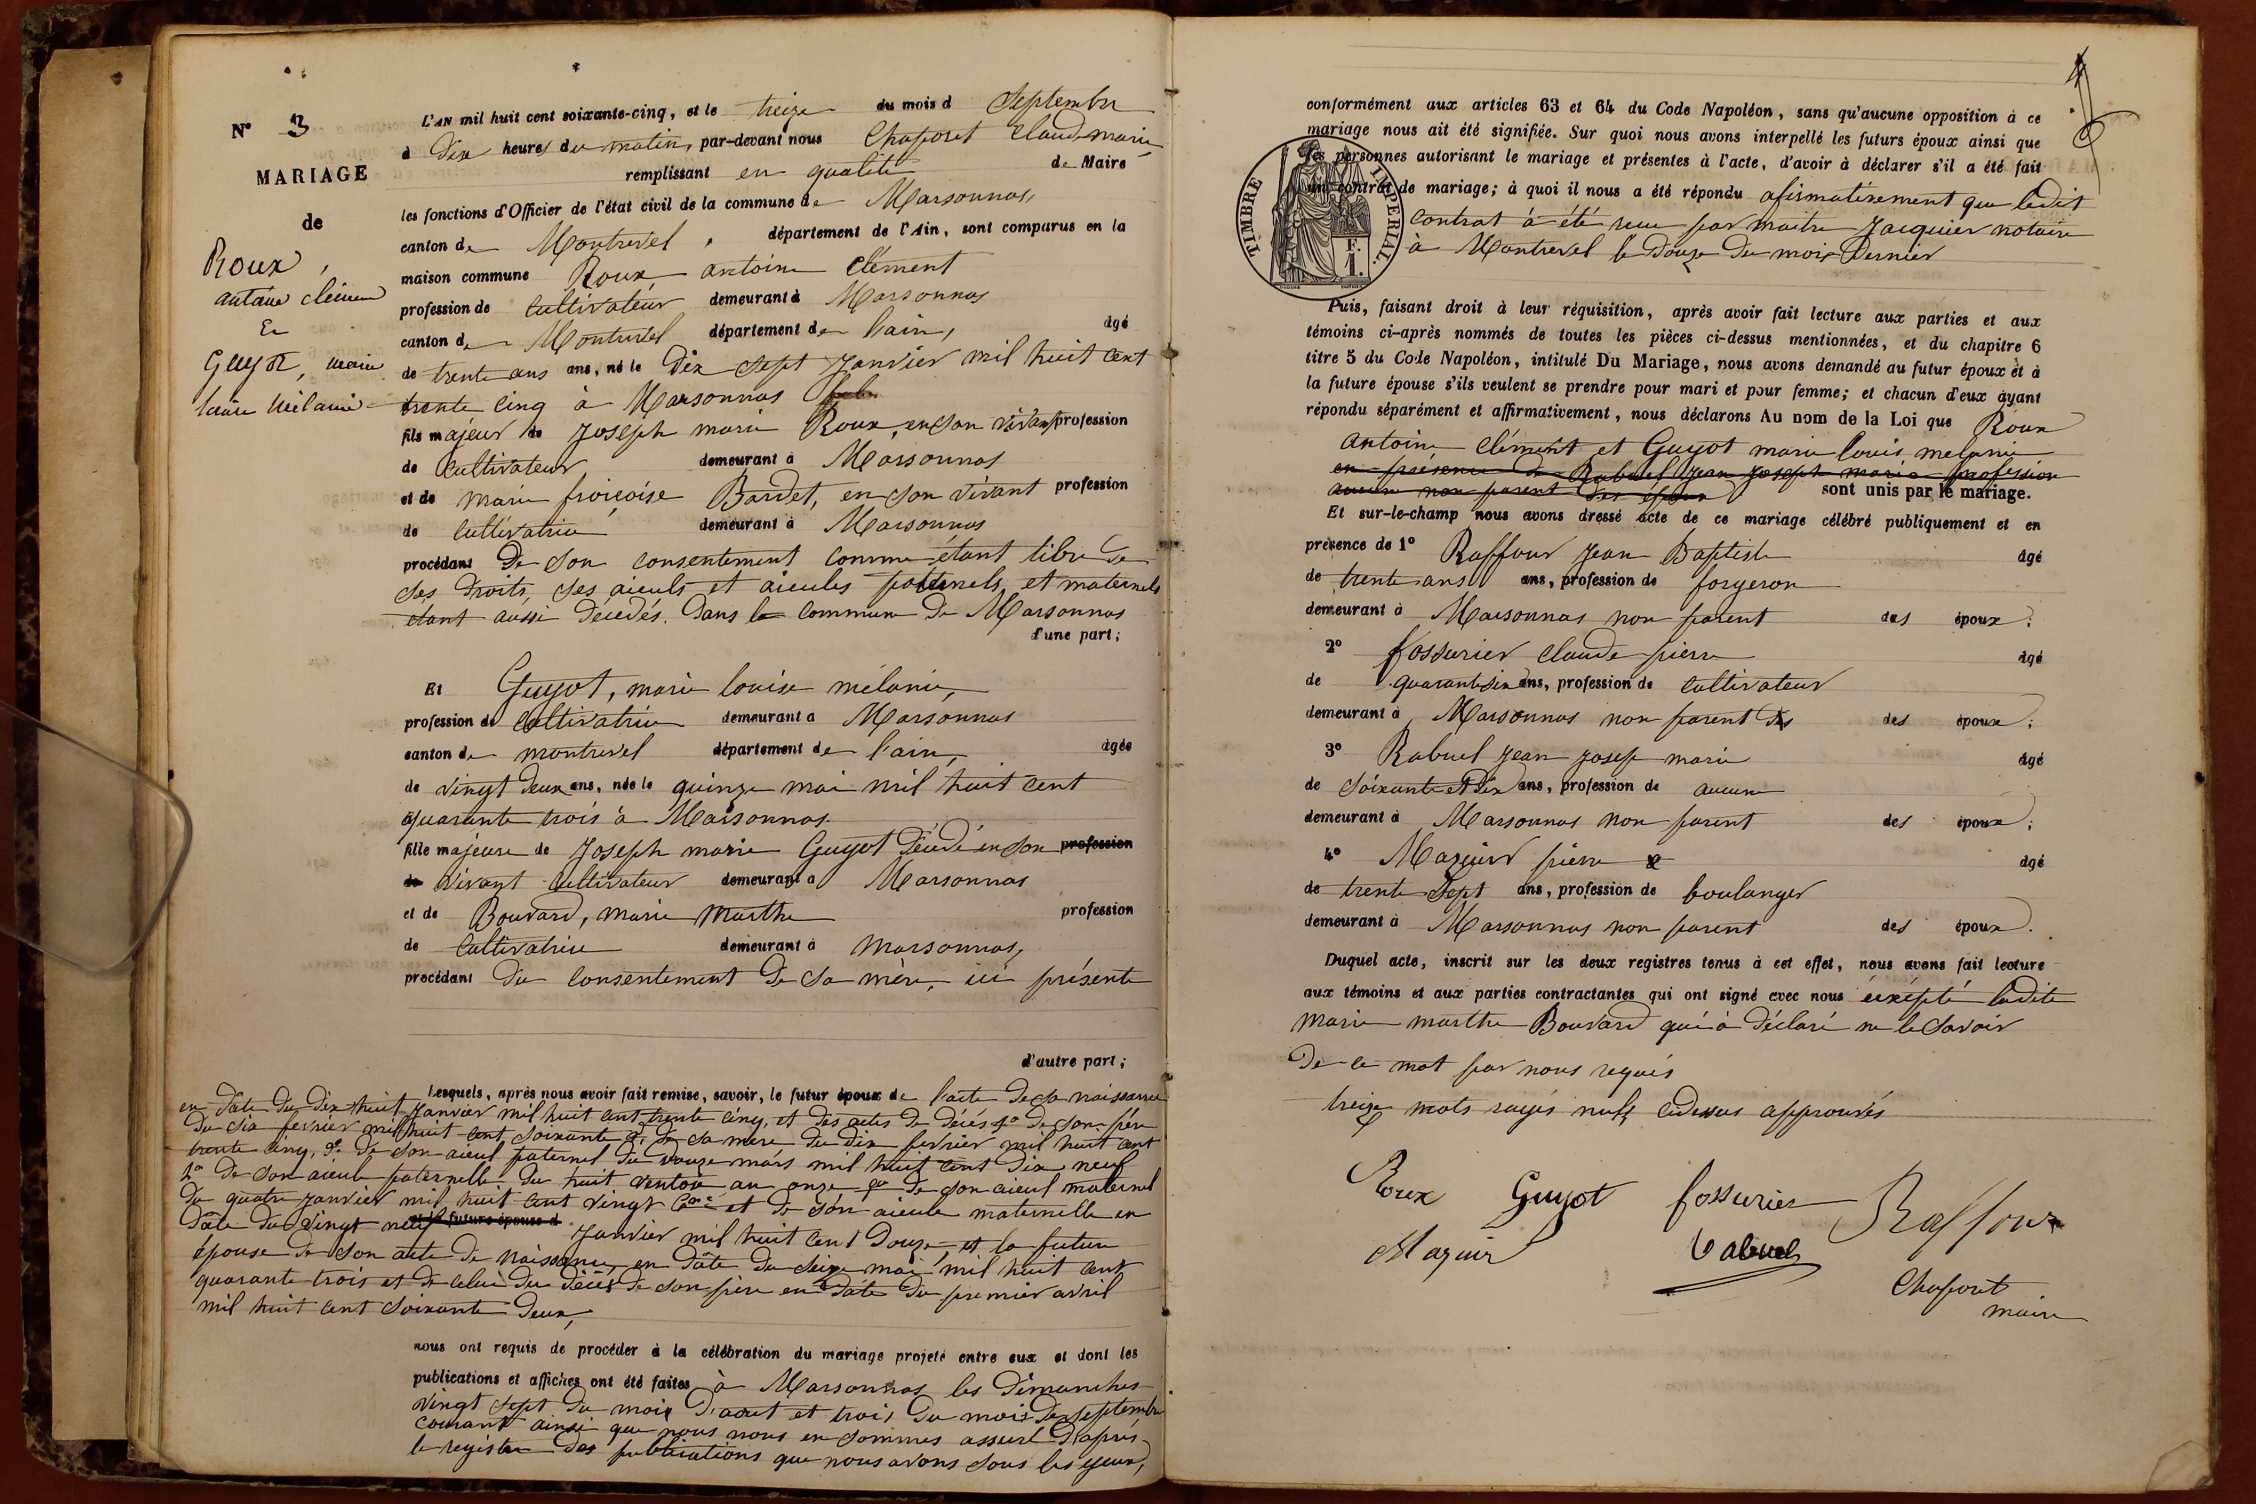 N° 3
MARIAGE
de
Roux,
antoine clément
Et
Guyot, marie
louise mélanie
L'AN mil huit cent soixante-cinq, et le treize du mois d Septembre
à dix heures du matin, par-devant nous Chaporet claude marie
remplissant en qualité de Maire
les fonctions d'Officier de l'état civil de la commune de Marsonnas,
canton de Montrevel, département de l'Ain, sont comparus en la
maison commune Roux antoine clément
profession de cultivateur demeurant à Marsonnas
canton de Montrevel département de l'ain, âgé
de trente ans ans, né le dix sept janvier mil huit cent
trente cinq à Marsonnas
fils majeur de joseph marie Roux, en son vivant profession
de cultivateur, demeurant à Marsonnas
et de marie froiçoise Bardet, en son vivant profession
de cultivatrice demeurant à Marsonnas
procédant de son consentement comme étant libre de
ses droits, ses aieuls et aieules paternels et maternels
étant aussi décedés. dans la commune de Marsonnas
d'une part;
Et Guyot, marie louise mélanie,
profession de cultivatrice demeurant à Marsonnas
canton de montrevel département de l'ain, âgée
de vingt deux ans, née le quinze mai mil huit cent
quarante trois à Marsonnas.
fille majeure de joseph marie Guyot décédé en son profession
de vivant cultivateur demeurant à Marsonnas
et de Bouvard, marie marthe profession
de cultivatrice demeurant à marsonnas,
procédant du consentement de sa mère, ici présente
d'autre part;
Lesquels, après nous avoir fait remise, savoir, le futur époux de l'acte de sa naissance
en date du dix huit janvier mil huit cent trente cinq, et des actes de décés 1° de son père
du six fevrier mil huit cent soixante 2° de sa mere du dix fevrier mil huit cent
trente cinq, 3° de son aieul paternel du douze mars mil huit cent dix neuf
4° de son aieule paternelle du huit ventose an onze 5° de son aieul maternel
du quatre janvier mil huit cent vingt et de son aieule maternelle en
date du vingt neuf et la future épouse d janvier mil huit cent douze, et la future
épouse de son acte de naissance, en date du seize mai mil huit cent
quarante trois et de celui du décés de son père en date du premier avril
mil huit cent soixante deux,
nous ont requis de procéder à la célébration du mariage projeté entre eux et dont les
publications et affiches ont été faites à Marsonnas les dimanches
vingt sept du mois d'aout et trois du mois de septembre
courant ainsi que nous nous en sommes assuré d'après
le registre des publications que nous avons sous les yeux,
conformément aux articles 63 et 64 du Code Napoléon, sans qu'aucune opposition à ce
mariage nous ait été signifiée. Sur quoi nous avons interpellé les futurs époux ainsi que
les personnes autorisant le mariage et présentes à l'acte, d'avoir à déclarer s'il a été fait
un contrat de mariage; à quoi il nous a été répondu afirmativement que ledit
contrat à été reçu par maitre Jacquier notaire
à Montrevel le douze du mois dernier
TIMBRE IMPERIAL.
F.
1.
Puis, faisant droit à leur réquisition, après avoir fait lecture aux parties et aux
témoins ci-après nommés de toutes les pièces ci-dessus mentionnées, et du chapitre 6
titre 5 du Code Napoléon, intitulé Du Mariage, nous avons demandé au futur époux et à
la future épouse s'ils veulent se prendre pour mari et pour femme; et chacun d'eux ayant
répondu séparément et affirmativement, nous déclarons Au nom de la Loi que Roux
antoine clément et Guyot marie louis melanie
en présence de Rabuel jean joseph marie profession
aucune non parent des époux sont unis par le mariage.
Et sur-le-champ nous avons dressé acte de ce mariage célébré publiquement et en
présence de 1° Raffour jean Baptiste âgé
de trente ans ans, profession de forgeron
demeurant à Marsonnas non parent des époux;
2° fossurier claude pierre âgé
de quarante six ans, profession de cultivateur
demeurant à Marsonnas non parent des époux;
3° Rabuel jean josep marie âgé
de soixante et dix ans, profession de aucune
demeurant à Marsonnas non parent des époux;
4° Mazuir pierre âgé
de trente sept ans, profession de boulanger
demeurant à Marsonnas non parent des époux.
Duquel acte, inscrit sur les deux registres tenus à cet effet, nous avons fait lecture
aux témoins et aux parties contractantes qui ont signé avec nous éxépté ladite
marie marthe Bouvard qui à déclaré ne le savoir
de ce mot par nous requis
treize mots rayés nuls cidessus approuvés
Roux Guyot fossurier Raffour
Mazuir Rabuel
Chaporet
maire